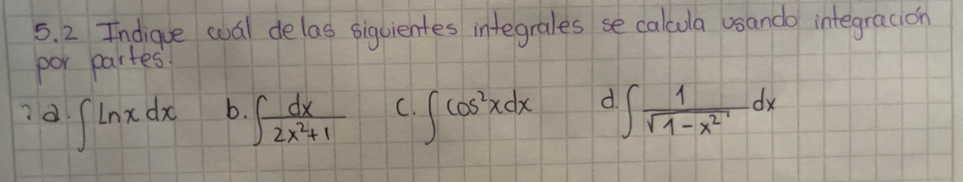 5.2 Indique cuál de las siguientes integrales se calcula usando integración
por partes.
a. ∫ Ln x dx b. ∫ dx/(2x²+1) c. ∫ cos²x dx d. ∫ 1/√(1-x²) dx